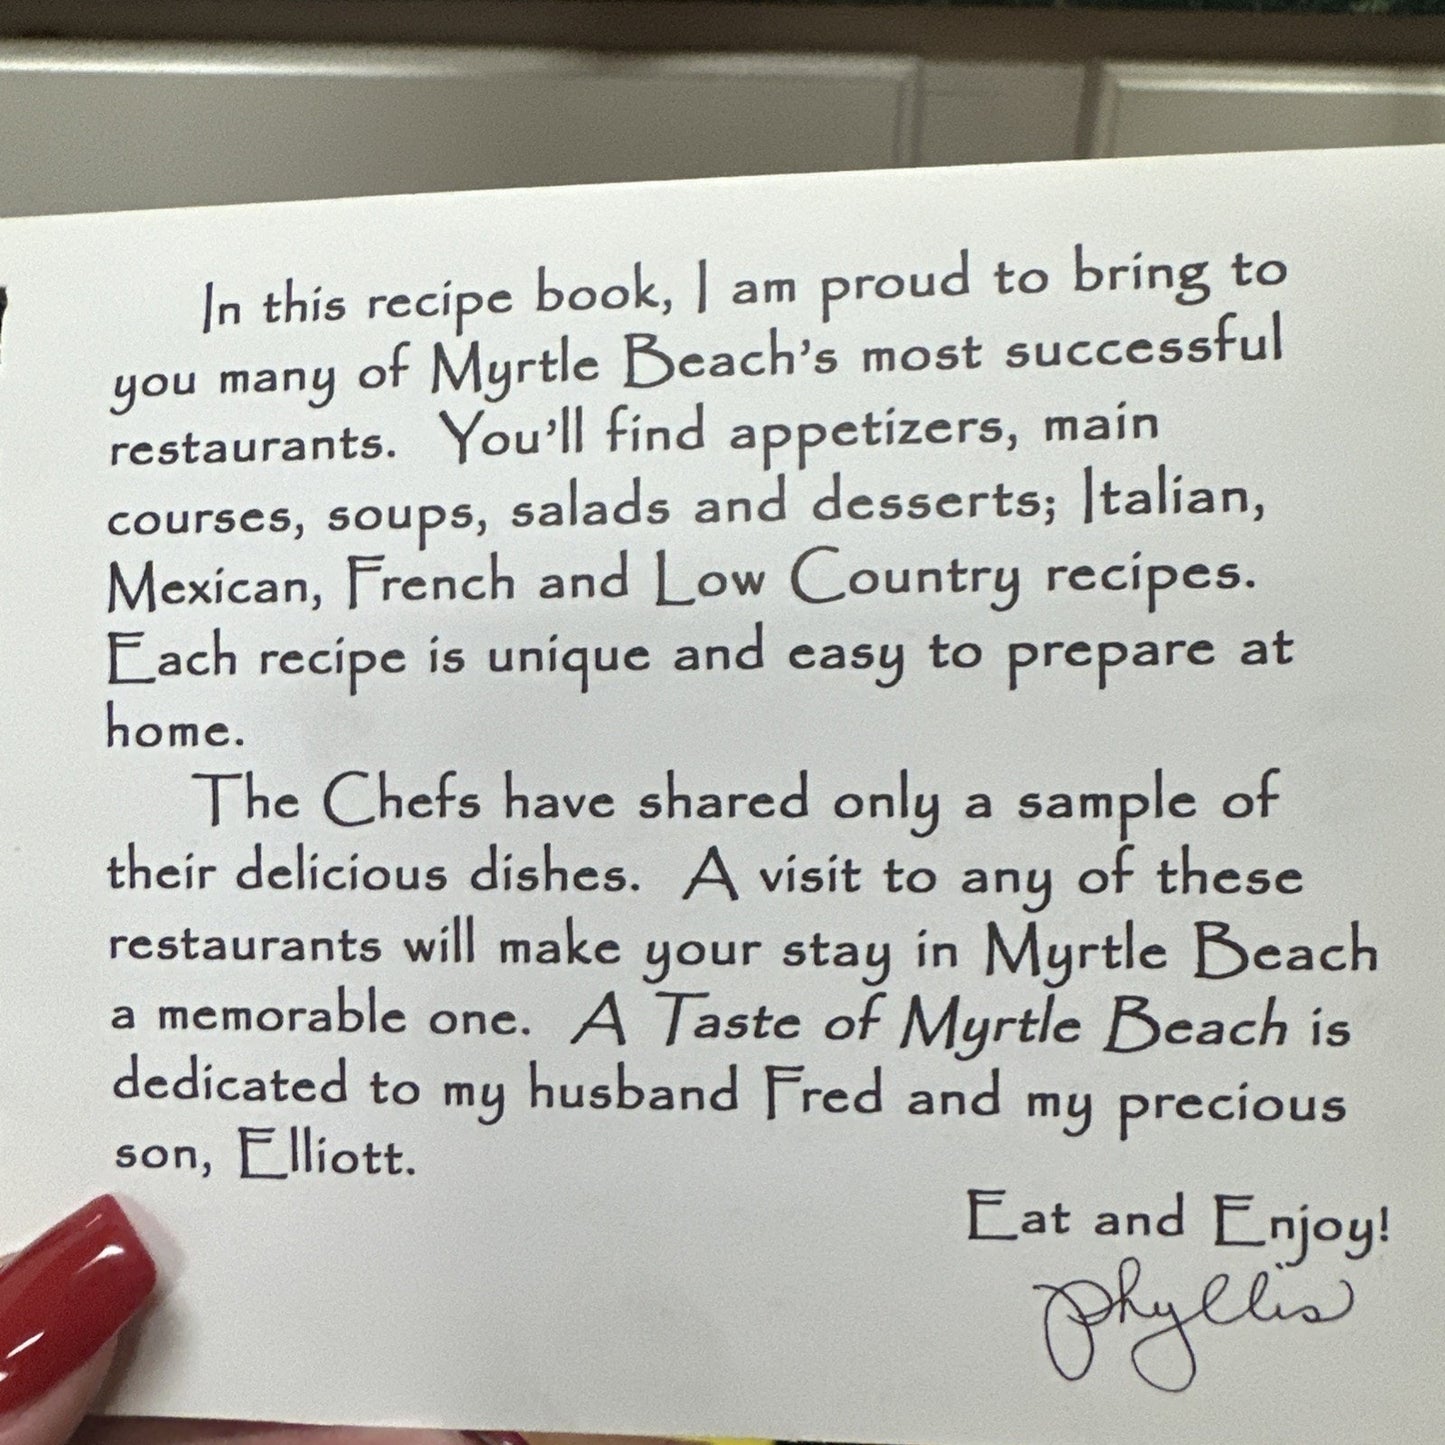 In this recipe book, I am proud to bring to
you many of Myrtle Beach's most successful
restaurants. You'll find appetizers, main
courses, soups, salads and desserts; Italian,
Mexican, French and Low Country recipes.
Each recipe is unique and easy to prepare at
home.
The Chefs have shared only a sample of
their delicious dishes. A visit to any of these
restaurants will make your stay in Myrtle Beach
a memorable one. A Taste of Myrtle Beach is
dedicated to my husband Fred and my precious
son, Elliott.
Eat and Enjoy!
Phyllis